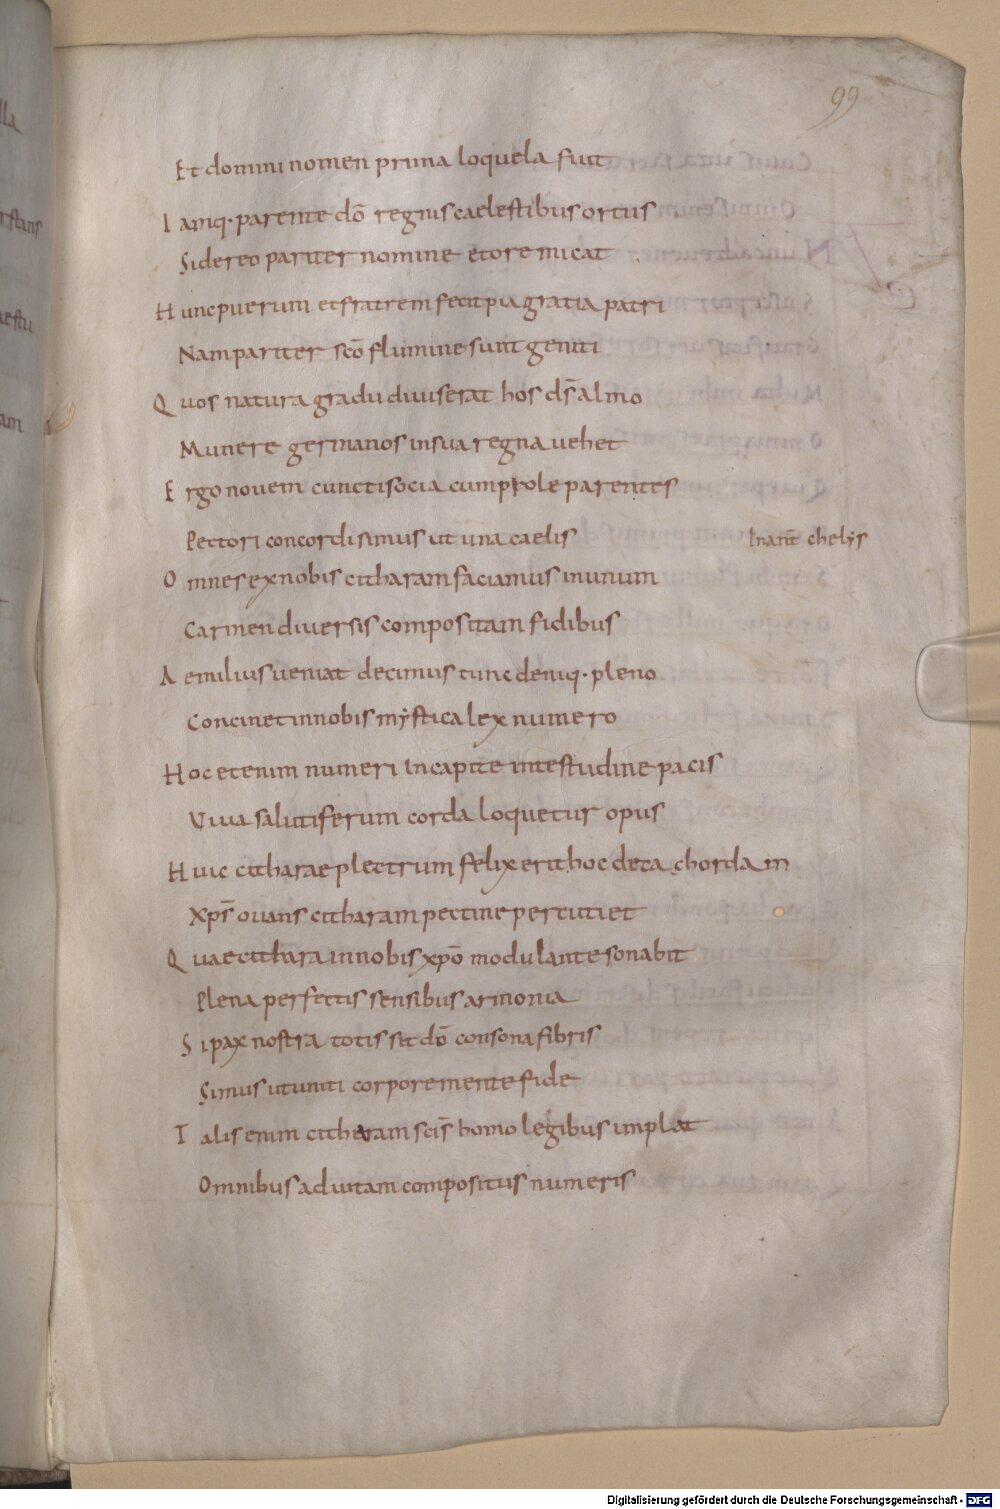 99
Et domini nomen prima loquela fuit
Iamq· parente dō regnis caelestibus ortus
Sidereo pariter nomine et ore micat
Hunc puerum et fratrem fecit pia gratia patri
Nam pariter scō flumine sunt geniti
Quos natura gradu diuiserat hos ds̄ almo
Munere germanos in sua regna uehet
Ergo nouem cuncti socia cum prole parentes
Pectori concordi simus ut una caelis
In ant̄ chelys
Omnes ex nobis citharam faciamus in unum
Carmen diuersis compositam fidibus
Aemilius ueniat decimus tunc deniq· pleno
Concinet in nobis mystica lex numero
Hoc etenim numeri in capite in testudine pacis
Viua salutiferum corda loquetur opus
Huic citharae plectrum felix erit hoc deca chordam
Xps̄ ouans citharam pectine percutiet
Quae cithara in nobis xpō modulante sonabit
Plena perfectis sensibus armonia
Si pax nostra totis sit dō consona fibris
Simus ut uniti corpore mente fide
Talis enim citheram scīs homo legibus implat
Omnibus ad uitam compositus numeris
Digitalisierung gefördert durch die Deutsche Forschungsgemeinschaft - DFG